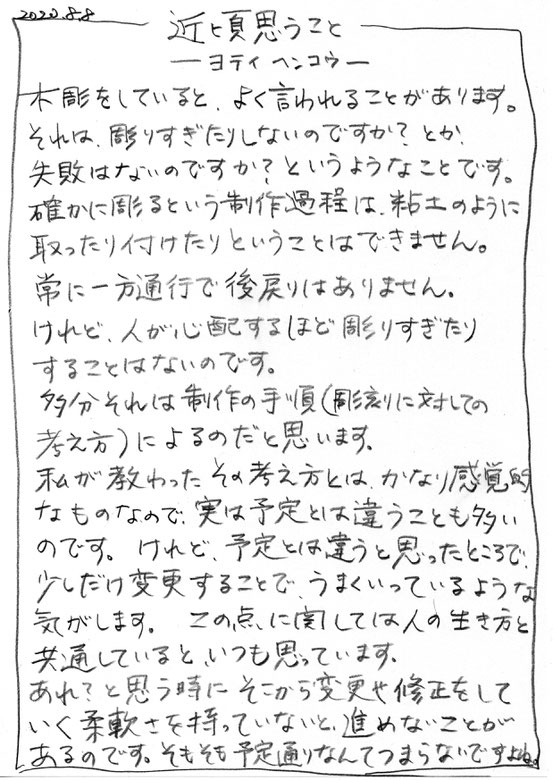 2020.8.8
近ごろ思うこと
ーヨテイ ヘンコウー
木彫をしていると、よく言われることがあります。
それは、彫りすぎたりしないのですか？とか、
失敗はないのですか？というようなことです。
確かに彫るという制作過程は、粘土のように
取ったり付けたりということはできません。
常に一方通行で後戻りはありません。
けれど、人が心配するほど彫りすぎたり
することはないのです。
多分それは制作の手順（彫刻に対しての
考え方）によるのだと思います。
私が教わったその考え方とは、かなり感覚的
なものなので、実は予定とは違うことも多い
のです。 けれど、予定とは違うと思ったところで、
少しだけ変更することで、うまくいっているような
気がします。 この点に関しては人の生き方と
共通していると、いつも思っています。
あれ？と思う時にそこから変更や修正をして
いく柔軟さを持っていないと、進めないことが
あるのです。そもそも予定通りなんてつまらないですよね。